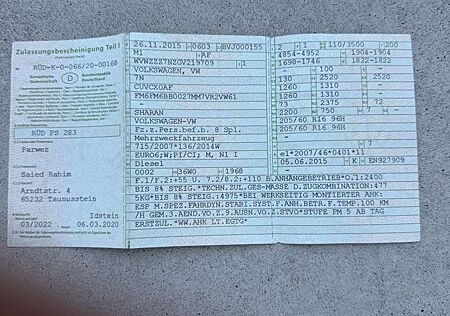 Zulassungsbescheinigung Teil I
RÜD-K-0-066/20-00168
Europäische Gemeinschaft
D
Bundesrepublik Deutschland
RÜD PS 283
Parwez
Saied Rahim
Arndtstr. 4
65232 Taunusstein
Idstein
03/2022
06.03.2020
26.11.2015 0603 BVJ000155
M1 AF
WVWZZZ7NZGV219709 1
VOLKSWAGEN, VW
7N
CUVCX0AF
FM6FM6BB0027MM7VR2VW61
SHARAN
VOLKSWAGEN-VW
Fz.z.Pers.bef.b. 8 Spl.
Mehrzweckfahrzeug
715/2007*136/2014W
EURO6;W;PI/CI; M, N1 I
Diesel
0002 36W0 1968
2 1 110/3500 200
4854-4952 1904-1904
1698-1746 1822-1822
- 100 -
130 2520 2520
1260 1310 -
1260 1310 -
73 2375 72
2200 750 7 -
205/60 R16 96H
205/60 R16 96H
-
e1*2007/46*0401*11
05.06.2015 K EN927909
- -
F.1/F.2:+55 U. 7.2/8.2:+110 B.ANHÄNGEBETRIEB*O.1:2400
BIS 8% STEIG.*TECHN.ZUL.GES-MASSE D.ZUGKOMBINATION:477
5KG*BIS 8% STEIG.:4975*BEI WERKSEITIG MONTIERTER AHK:
ESP M.SPEZ.FAHRDYN.STAB.SYST.F.ANH.BETR.F.TEMP.100 KM
/H GEM.3.AEND.VO.Z.9.AUSN.VO.Z.STVO*STUFE PM 5 AB TAG
ERSTZUL.*WW.AHK LT.EGTG*